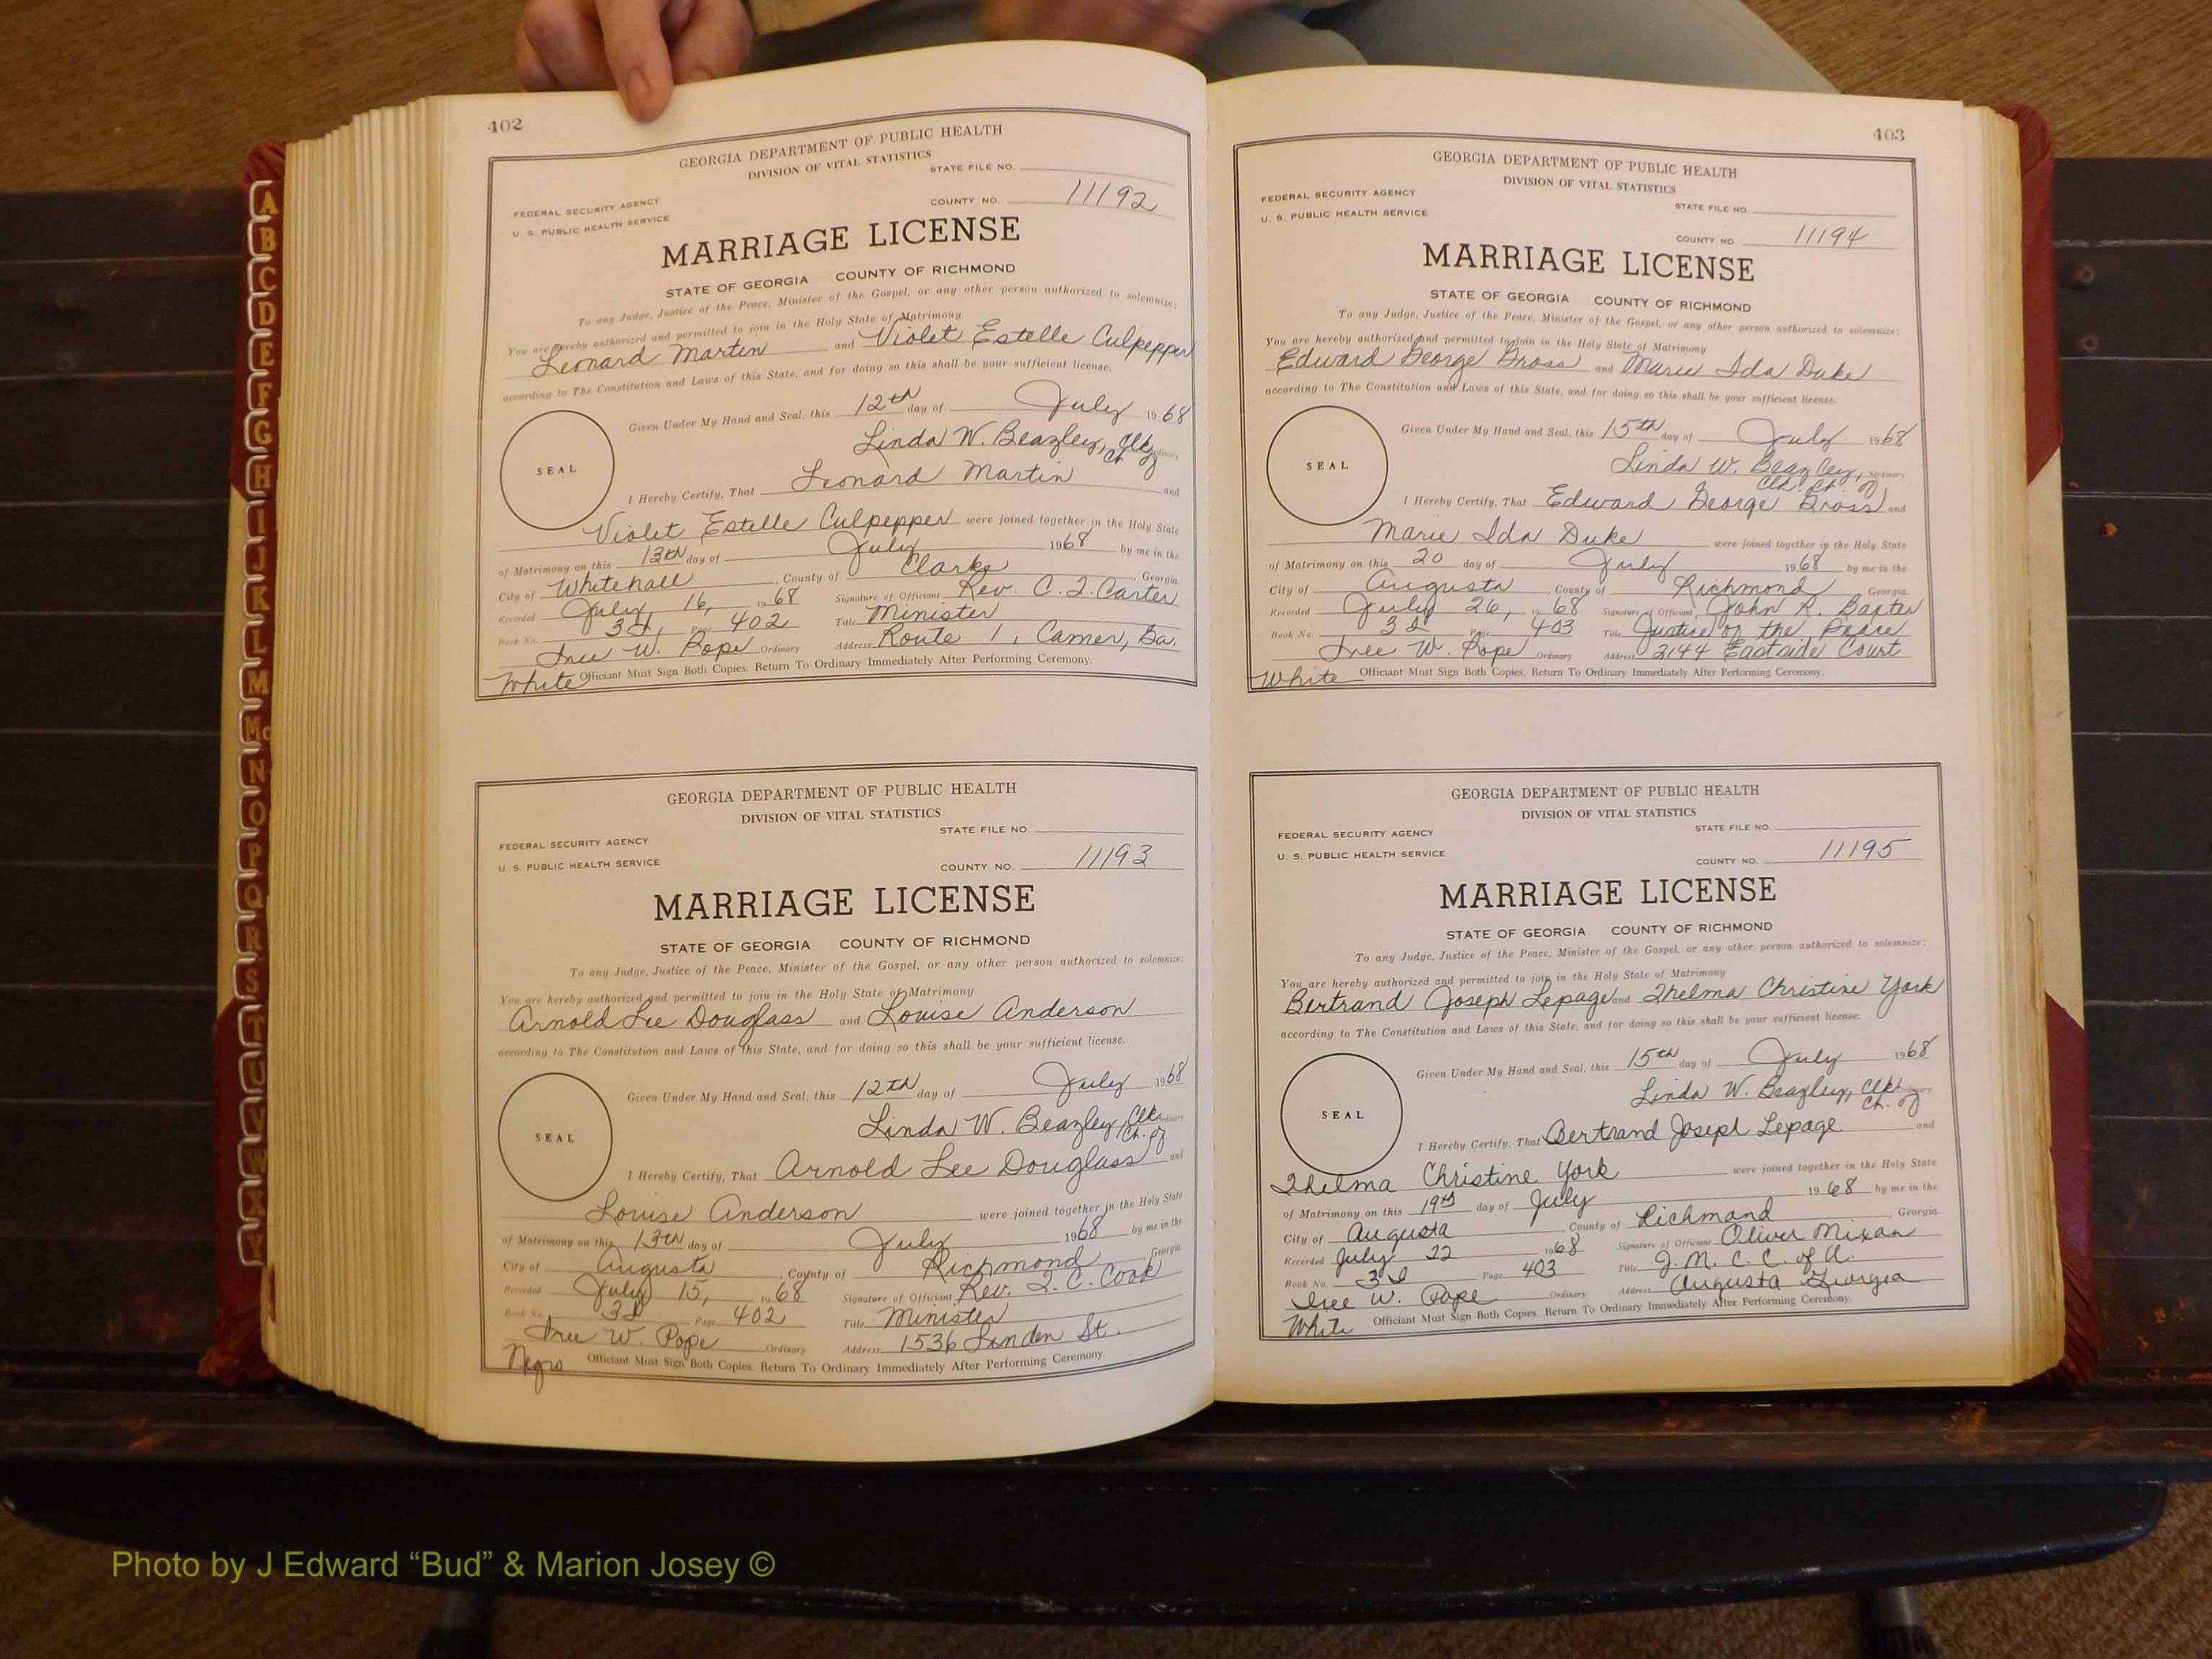 402
GEORGIA DEPARTMENT OF PUBLIC HEALTH
DIVISION OF VITAL STATISTICS
STATE FILE NO.
FEDERAL SECURITY AGENCY
U. S. PUBLIC HEALTH SERVICE
COUNTY NO. 11192
MARRIAGE LICENSE
STATE OF GEORGIA COUNTY OF RICHMOND
To any Judge, Justice of the Peace, Minister of the Gospel, or any other person authorized to solemnize:
You are hereby authorized and permitted to join in the Holy State of Matrimony
Leonard Martin and Violet Estelle Culpepper
according to The Constitution and Laws of this State, and for doing so this shall be your sufficient license.
Given Under My Hand and Seal, this 12th day of July 1968
SEAL
Linda W. Beazley, Clk. Ordinary
Ct. of
I Hereby Certify, That Leonard Martin and
Violet Estelle Culpepper were joined together in the Holy State
of Matrimony on this 13th day of July 1968 by me in the
City of Whitehall, County of Clarke, Georgia.
Recorded July 16, 1968 Signature of Officiant Rev. C. J. Carter
Book No. 3 Page 402 Title Minister
W. Pope Ordinary Address Route 1, Camer, Ga.
White Officiant Must Sign Both Copies. Return To Ordinary Immediately After Performing Ceremony.
GEORGIA DEPARTMENT OF PUBLIC HEALTH
DIVISION OF VITAL STATISTICS
STATE FILE NO.
FEDERAL SECURITY AGENCY
U. S. PUBLIC HEALTH SERVICE
COUNTY NO. 11193
MARRIAGE LICENSE
STATE OF GEORGIA COUNTY OF RICHMOND
To any Judge, Justice of the Peace, Minister of the Gospel, or any other person authorized to solemnize:
You are hereby authorized and permitted to join in the Holy State of Matrimony
Arnold Lee Douglass and Louise Anderson
according to The Constitution and Laws of this State, and for doing so this shall be your sufficient license.
Given Under My Hand and Seal, this 12th day of July 1968
SEAL
Linda W. Beazley, Clk. Ordinary
Ct. of
I Hereby Certify, That Arnold Lee Douglass and
Louise Anderson were joined together in the Holy State
of Matrimony on this 13th day of July 1968 by me in the
City of Augusta, County of Richmond, Georgia
Recorded July 15, 1968 Signature of Officiant Rev. J. C. Cook
Book No. 3 Page 402 Title Minister
W. Pope Ordinary Address 1536 Linden St.
Negro Officiant Must Sign Both Copies. Return To Ordinary Immediately After Performing Ceremony.
403
GEORGIA DEPARTMENT OF PUBLIC HEALTH
DIVISION OF VITAL STATISTICS
FEDERAL SECURITY AGENCY
U. S. PUBLIC HEALTH SERVICE
STATE FILE NO.
COUNTY NO. 11194
MARRIAGE LICENSE
STATE OF GEORGIA COUNTY OF RICHMOND
To any Judge, Justice of the Peace, Minister of the Gospel, or any other person authorized to solemnize:
You are hereby authorized and permitted to join in the Holy State of Matrimony
Edward George Gross and Marie Ida Duke
according to The Constitution and Laws of this State, and for doing so this shall be your sufficient license.
Given Under My Hand and Seal, this 15th day of July 1968
SEAL
Linda W. Beazley, Ordinary
Clk. Ct. of
I Hereby Certify, That Edward George Gross and
Marie Ida Duke were joined together in the Holy State
of Matrimony on this 20 day of July 1968 by me in the
City of Augusta, County of Richmond Georgia.
Recorded July 26, 1968 Signature of Officiant John R. Baxter
Book No. 3 Page 403 Title Justice of the Peace
W. Pope Ordinary Address 2144 Eastside Court
White Officiant Must Sign Both Copies. Return To Ordinary Immediately After Performing Ceremony.
GEORGIA DEPARTMENT OF PUBLIC HEALTH
DIVISION OF VITAL STATISTICS
STATE FILE NO.
FEDERAL SECURITY AGENCY
U. S. PUBLIC HEALTH SERVICE
COUNTY NO. 11195
MARRIAGE LICENSE
STATE OF GEORGIA COUNTY OF RICHMOND
To any Judge, Justice of the Peace, Minister of the Gospel, or any other person authorized to solemnize:
You are hereby authorized and permitted to join in the Holy State of Matrimony
Bertrand Joseph Lepage and Thelma Christine York
according to The Constitution and Laws of this State, and for doing so this shall be your sufficient license.
Given Under My Hand and Seal, this 15th day of July 1968
SEAL
Linda W. Beazley, Clk. Ordinary
Ct. of
I Hereby Certify, That Bertrand Joseph Lepage and
Thelma Christine York were joined together in the Holy State
of Matrimony on this 19th day of July 1968 by me in the
City of Augusta, County of Richmond, Georgia.
Recorded July 22 1968 Signature of Officiant Oliver Mixon
Book No. 3 Page 403 Title J. M. C. C. of A.
W. Pope Ordinary Address Augusta Georgia
White Officiant Must Sign Both Copies. Return To Ordinary Immediately After Performing Ceremony.
A
B
C
D
E
F
G
H
I
J
K
L
M
Mc
N
O
P
Q
R
S
T
U
V
W
X
Y
Photo by J Edward “Bud” & Marion Josey ©